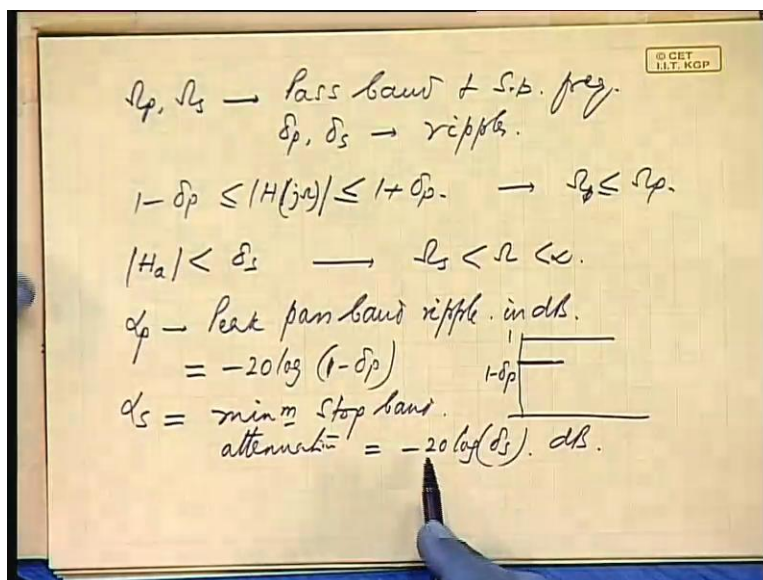 © CET
I.I.T. KGP
Ωp, Ωs → Pass band & S.b. freq.
δp, δs → ripples.
1 - δp ≤ |H(jΩ)| ≤ 1 + δp. → Ωp ≤ Ωp.
|Ha| < δs → Ωs < Ω < ∞.
αp – Peak pass band ripple. in dB.
= -20 log (1 - δp)
1
1-δp
αs = minm stop band.
attenuation = -20 log(δs). dB.